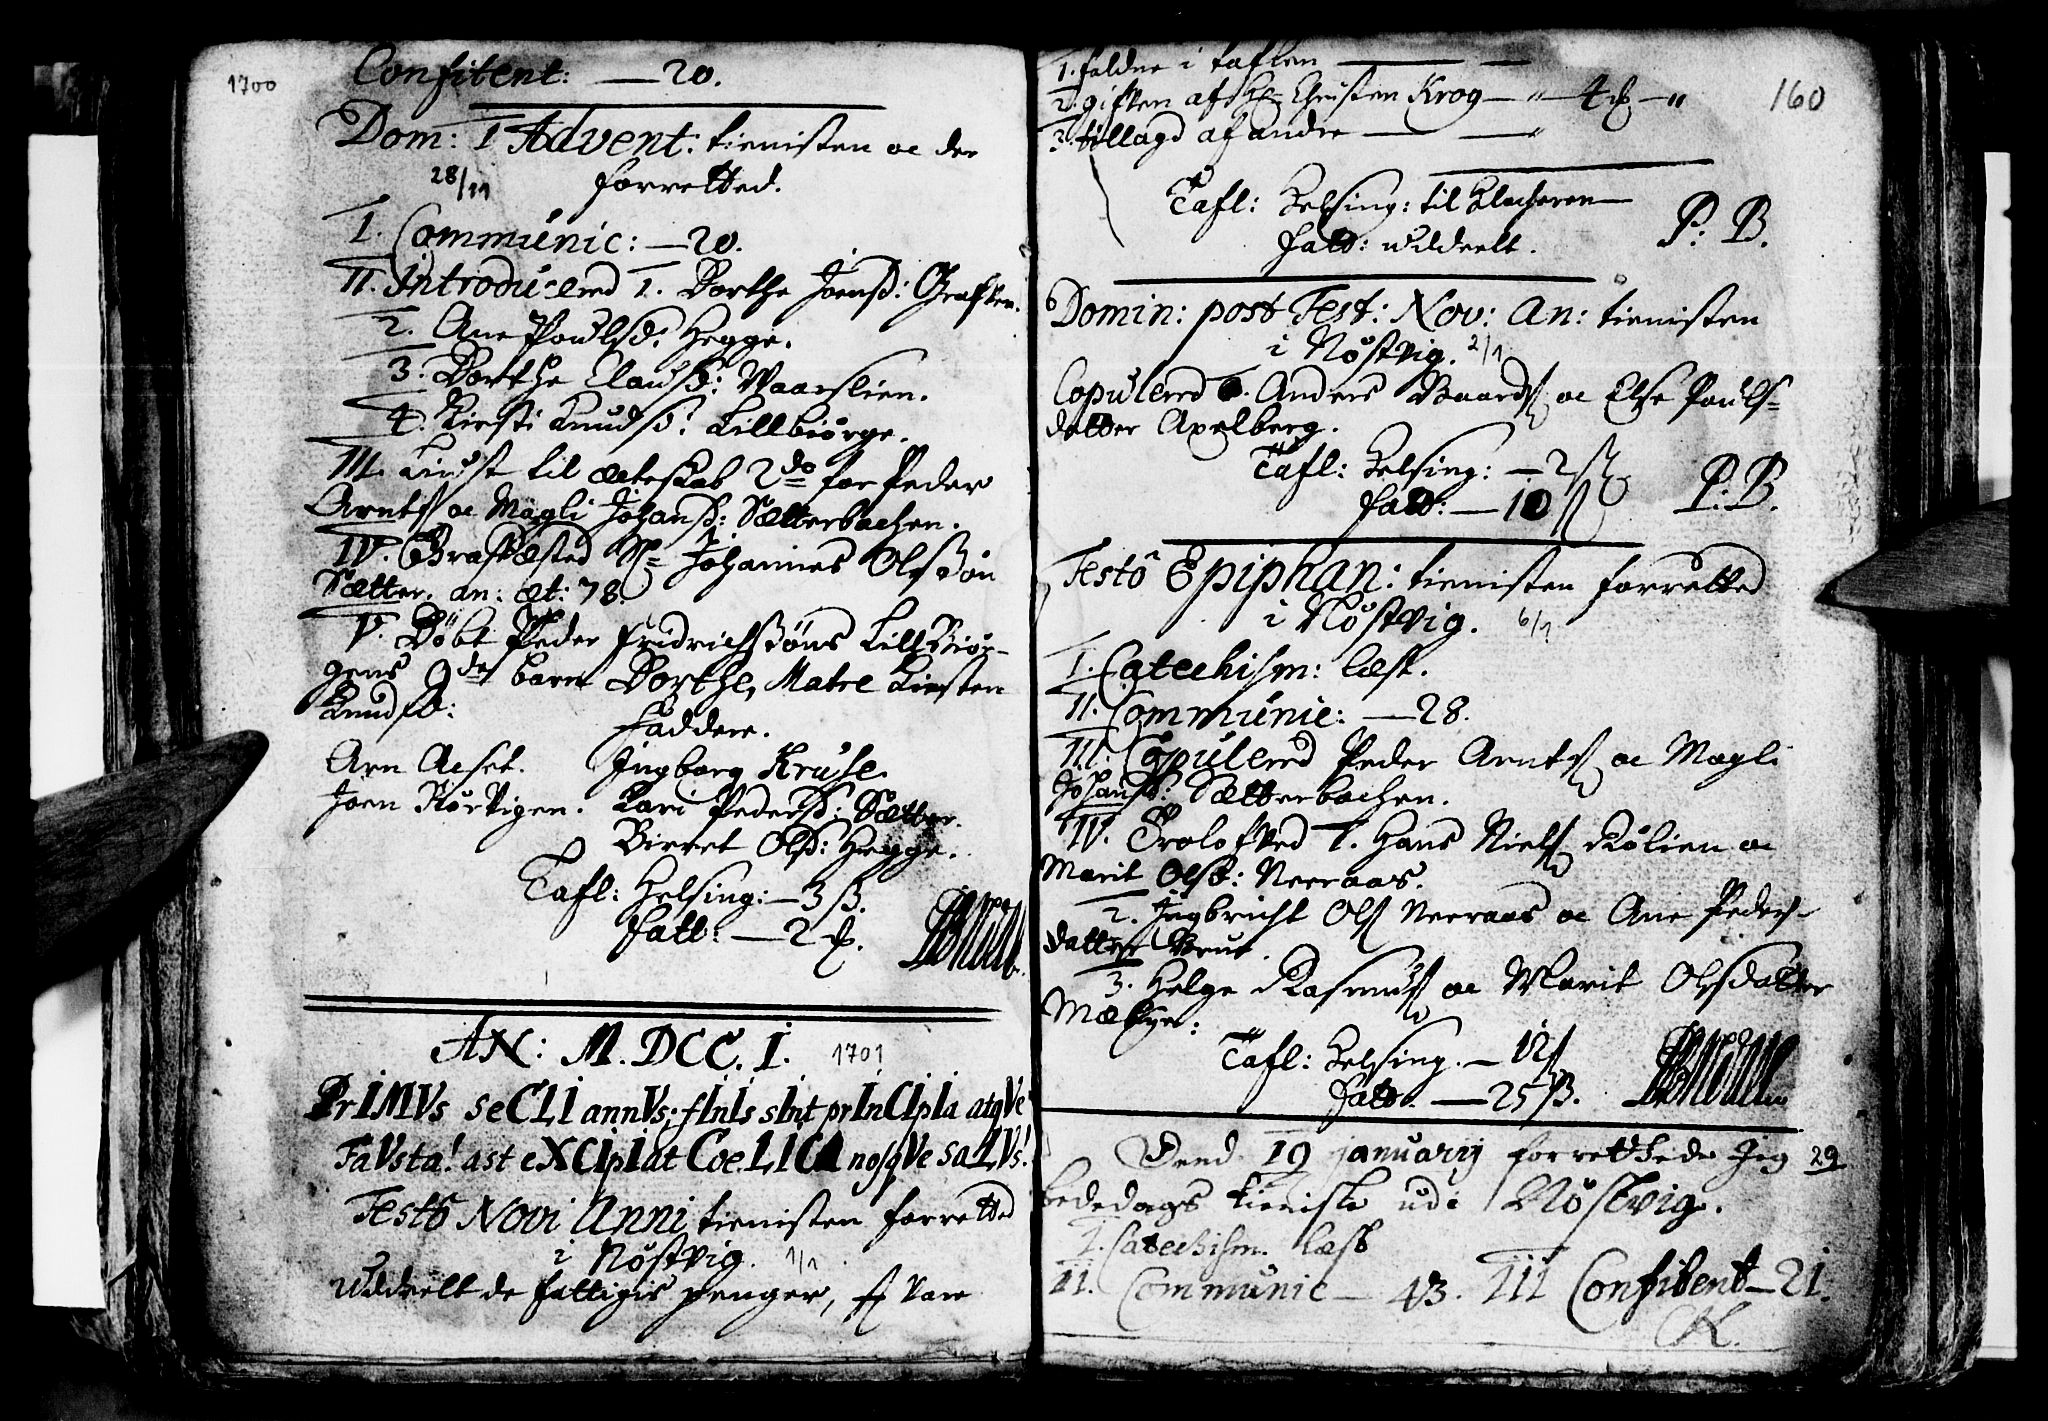 1700
Confitent: — 20.
Dom: 1 Advent: tienisten oc der
28/11 forretted.
I. Communic: — 20.
II. Introducerd 1. Dorthe Joensd:
2. Ane Poulsd: Hegge.
3. Dorthe Clausd: Waarslien.
4. Kirsti Knudsd: Lillbiørge.
III. Liust til ecteskab 2do for Peder
Arnts oc Magli Johansd: Sætterbachen.
IV. Grafkæsted Sr Johannes Olssøn
Sætter. an: æt: 78.
V. Døbt Peder Fridrichsøns Lillbiør-
gens barn Dorthe, Matre Kirsten
Knudsd:
Faddere.
Arn Aeset. Ingborg Kruse.
Joen Kørkigen. Kari Pedersd: Sætter.
Birret Olsd: Hegge.
Tafl: Helsing: — 3 ß.
Fatt: — 2
AN: M. DCC. I. 1701
PrIMVs seCLI annVs; fInIs sInt prInCIpIa atqVe
FaVsta! ast eXCIpIat CoeLICA nosqVe saLVs!
Festo Novi Anni tienisten forretted
i Nøstvig. 1/1
Uddeelt de fattigis penger, som vare
160
1. faldne i taflen —
2. gifven af Hr Christen Krog — " — 4 — "
3. tillagd af andre —
Tafl: Helsing: til Klocheren
Fatt: uddeelt. P. B.
Domin: post Fest: Nov: An: tienisten
i Nøstvig. 2/1
Copulerd 1. Anders Baards oc Else Pouls-
datter Axelberg.
Tafl: Helsing: — 2 ß
Fatt: — 10 ß P. B.
Festo Epiphan: tienisten forretted
i Nøstvig. 6/1
I. Catechism: læst.
II. Communic: — 28.
III. Copulerd Peder Arnts oc Magli
Johansd: Sætterbachen.
IV. Trolofved 1. Hans Niels Rølien oc
Marit Olsd: Neeraas.
2. Ingbricht Ols Neeraas oc Ane Peders-
datter
3. Helge Rasmus oc Marit Olsdatter
Tafl: Helsing. — 12 ß
Fatt. — 25 ß.
Dend 19 januarij forrettede Jeg 29
bededags tieniste udi Nøstvig.
I. Catechism. læst
II. Communic — 43. III Confitent — 21.